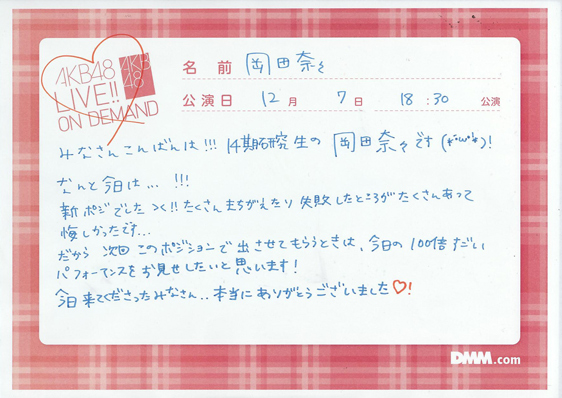 AKB48
LIVE!!
ON DEMAND
AKB
48
名前 岡田奈々
公演日 12月 7日 18:30 公演
みなさんこんばんは!!! 14期研究生の 岡田奈々です(*'ω'*)!
なんと今日は... !!!
新ポジでした つく!! たくさんまちがえたり 失敗したところがたくさんあって
悔しかったです...
だから 次回 このポジションで 出させてもらうときは、今日の 100倍 すごい
パフォーマンスを お見せしたいと 思います!
今日 来てくださったみなさん.. 本当に ありがとうございました♡!
DMM.com